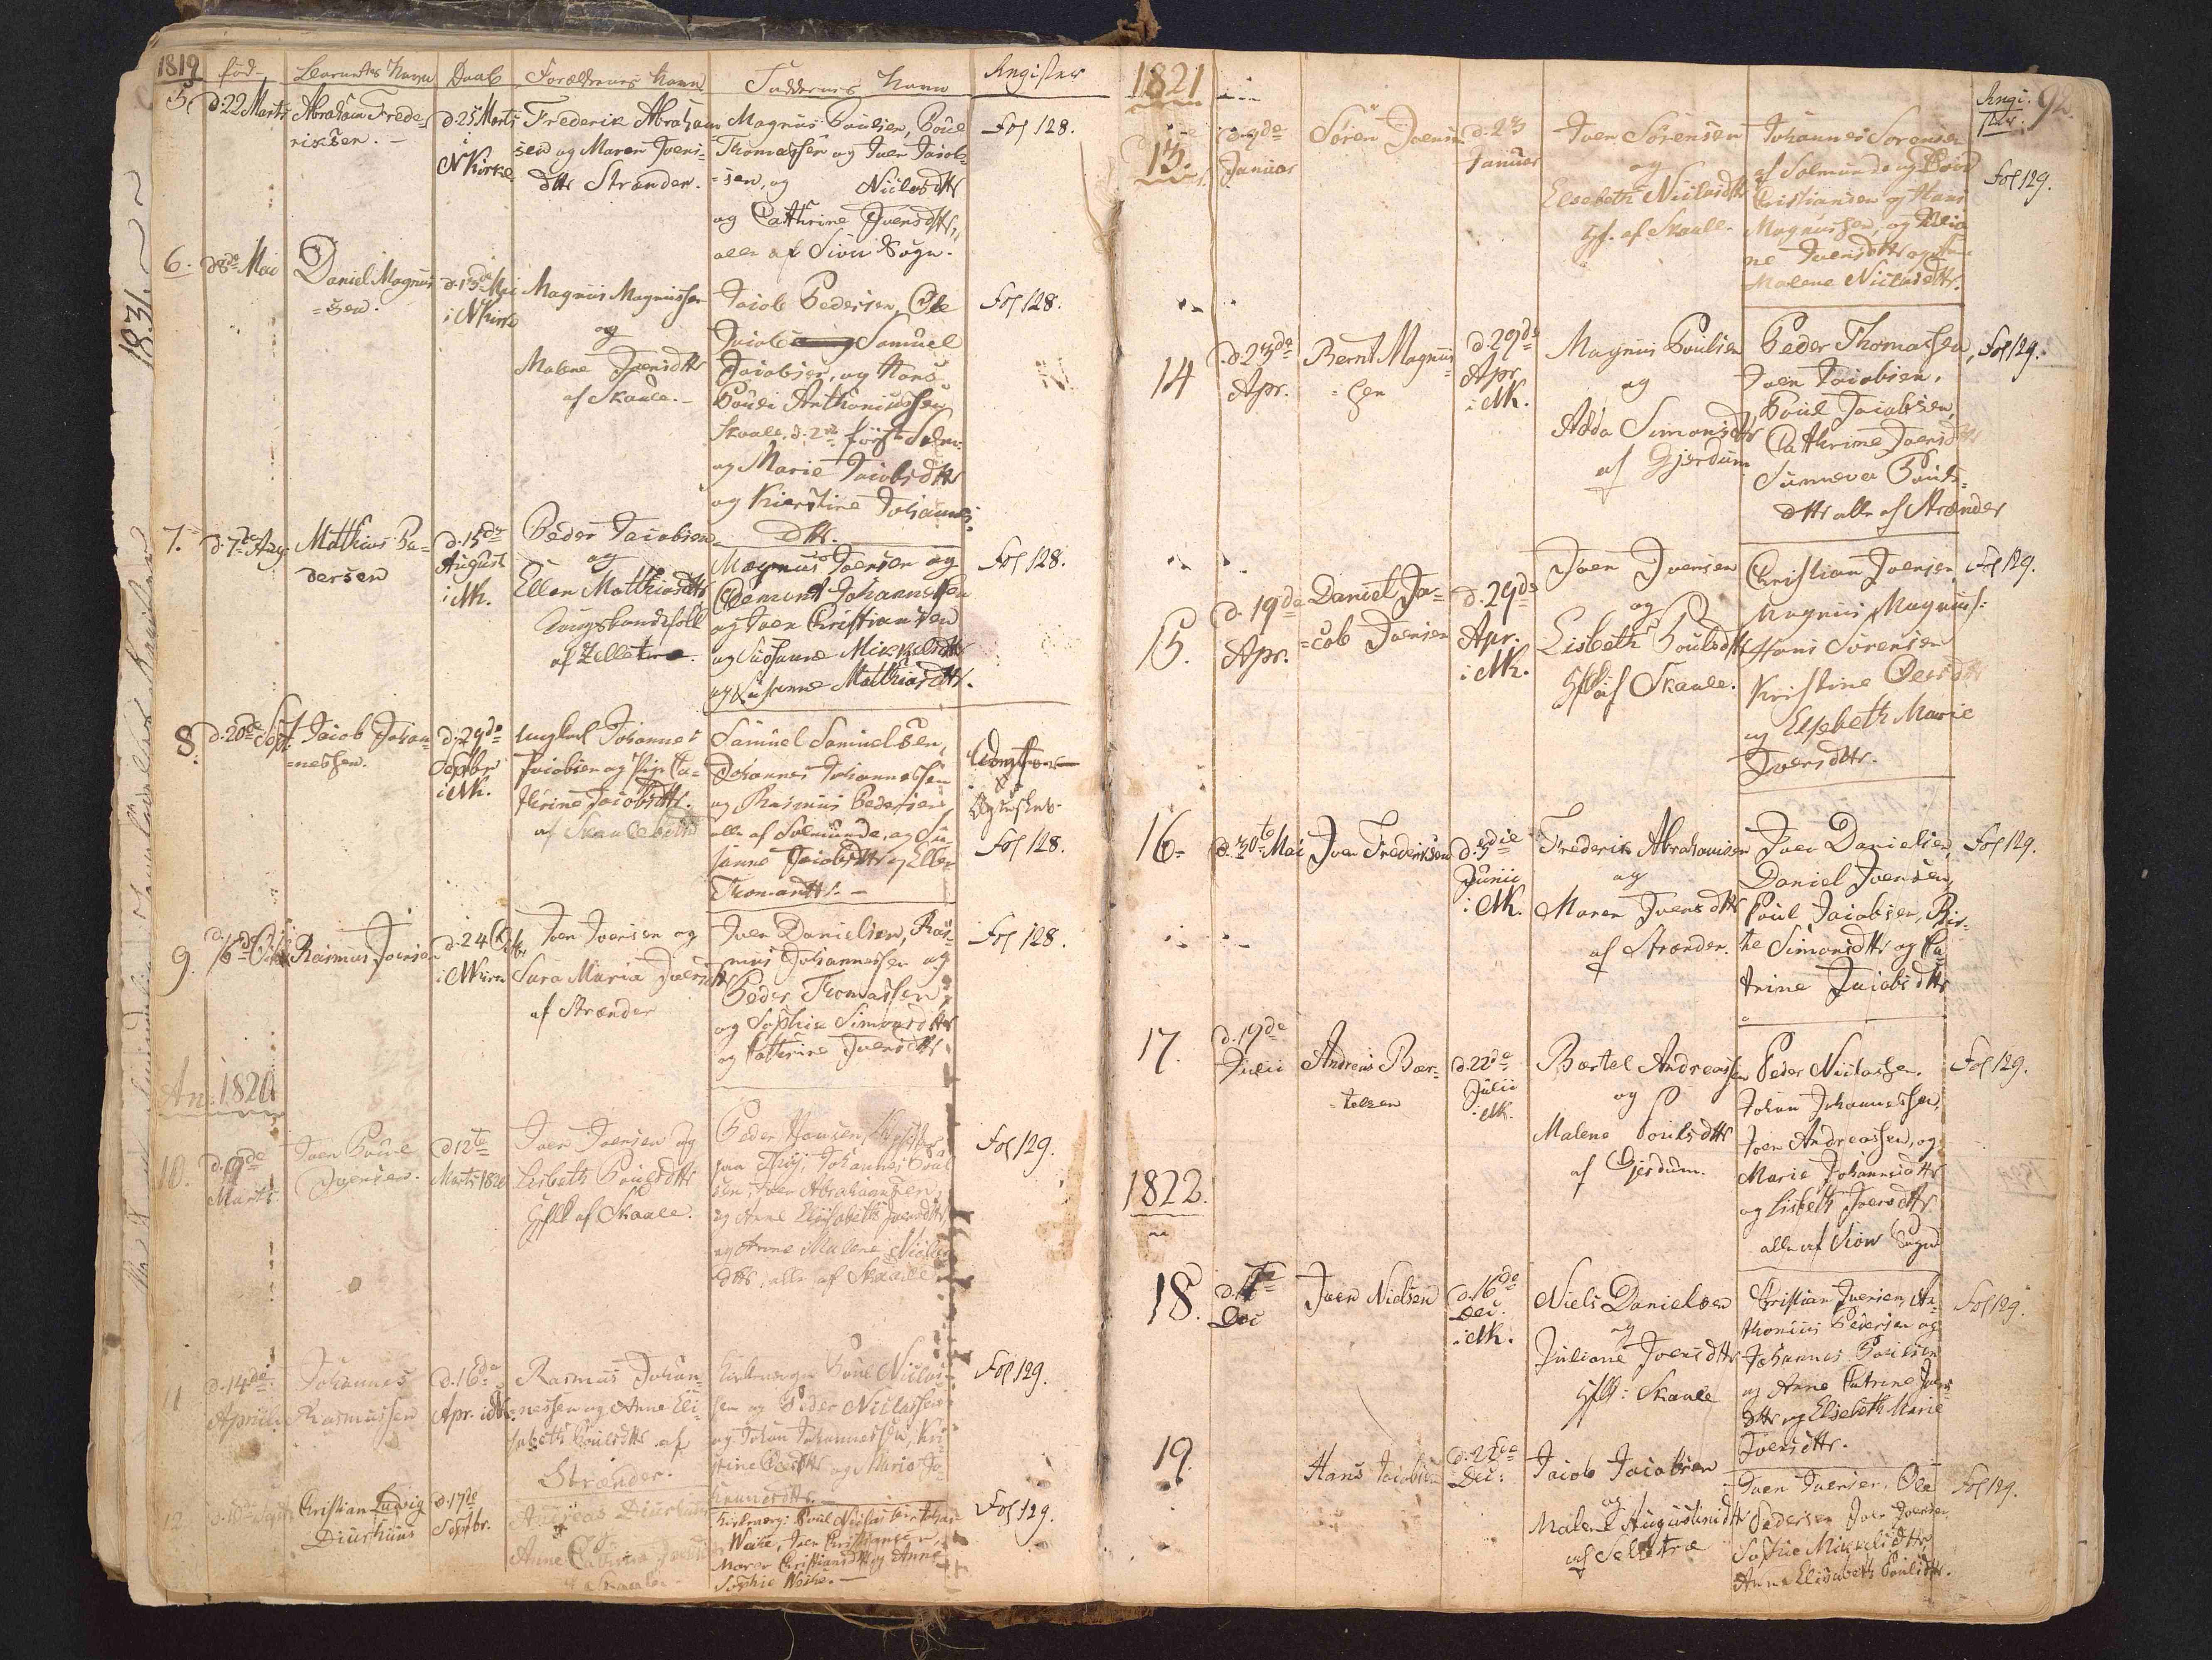 1819
fød
Barnets Navn
Daab
Forældrenes Navn
Faddernes Navn
Register
5.
d. 22 Marts
Abraham Frede-
riksen.
d. 25 Marts
i
N Kirke
Frederik Abraham
sen og Maren Joens-
dttr Strænder.
Magnus Poulsen, Poul
Thomassen og Joen Jacob-
sen, og Niclosdttr
og Cathrine Joensdttr,
alle af Siou Sogn.
Fol 128.
6.
d. 8de Mai
Daniel Magnus
=sen.
d. 13de Mai
i N Kirke
Magnus Magnussen
og
Malene Joensdttr
af Skaale.
Jacob Pedersen, Ole
Jacobs Samuel
Jacobsen, og Hans
Pouli Anthoniussen
Skaale, d. 2de først
og Marie Jacobsdttr
og Kierstine Johannes-
dttr.
Fol 128.
7.
d. 7de Aug.
Matthias Pe-
dersen
d. 15de
August
i NK.
Peder Jacobsen
og
Ellen Matthiasdttr
af Selletræ.
Magnus Joensen og
Clement Johannesen
og Joen Christiansen
og Susanne Mikkelsdttr
og Susanne Matthiasdttr.
Fol 128.
8.
d. 20de Sept.
Jacob Johan-
=nessen.
d. 29de
Septbr
i NK.
Ungkarl Johannes
Jacobsen og Pige Ca-
thrine Jacobsdttr.
af Skaalebotn
Samuel Samuelsen,
Johannes Johannessen
og Rasmus Pedersen
alle af Solmunde, og Su-
sanne Jacobsdttr og Ellen
Thomasdttr.
Fol 128.
9.
d. 16de Octbr
Rasmus Joensen
d. 24 Octbr
i N Kirke
Joen Joensen og
Sara Maria Joensdttr
af Strænder
Joen Danielsen, Ras-
mus Johannessen og
Peder Thomassen,
og Sophia Simonsdttr
og Cathrine Joensdttr
Fol 128.
An: 1820
10.
Marts.
Joen Poul
Joensen.
d 12te
Marts 1820
Joen Joensen og
Lisbeth Poulsdttr
Ægtf af Skaale.
Peder Hansen,
Johannes Poul
sen, Joen Abrahamsen,
og Anne Elisabeth Joensdttr
og Anne Malene Niclas
dttr, alle af Skaale
Fol 129.
11
d. 14de
Aprilis
Johannes
Rasmussen
d. 16de
Apr. i NK.
Rasmus Johan-
nessen og Anne Eli-
sabeth Poulsdttr af
Strænder.
Kirkeverger Poul Niclas-
sen og Peder Niclassen
og Johan Johannessen, Kri-
stine og Maria Jo-
hannesdttr.
Fol 129.
12
Christian Ludvig
Diurhuus
d. 17de
Septbr.
Andreas Diurhuus
og
Anne
Kirkeverg: Poul Niclassen, Johan
Weihe, Joen Christiansen,
Maren Christiansdttr og Anne
Sophie Weihe.
Fol 129.
1821
Regi-
ster.
92.
13.
Januar
Søren Joensen
d. 23
Januar
Joen Sørensen
og
Elsebeth Niclasdttr
Ægf. af Skaale.
Johannes Sørensen
af Solmunde og Poul
Christiansen og Hans
Magnussen, og Elia-
ne Joensdttr og
Malene Niclasdttr.
Fol 129.
14
d. 23de
Apr.
Bernt Magnus-
=sen
d. 29de
Apr.
i NK.
Magnus Poulsen
og
Adda Simonsdttr
af Gjerdum
Peder Thomassen,
Joen Jacobsen,
Poul Jacobsen,
Cathrine Joensdttr
Sunneva Pouls-
dttr alle af Strænder
Fol 129.
15.
d. 19de
Apr.
Daniel Ja-
=cob Joensen
d. 29de
Apr.
i NK.
Joen Joensen
og
Lisbeth Poulsdttr
Ægtf. af Skaale.
Christian Joensen
Magnus Magnuss:
Hans Sørensen
Kristine Olesdttr
og Elsebeth Marie
Joensdttr.
Fol 129.
16
d. 30te Mai
Joen Frederiksen
d. 3die
Junii
i NK.
Frederik Abrahamsen
og
Maren Joensdttr
af Strænder.
Joen Danielsen,
Daniel Joensen,
Poul Jacobsen, Bir-
the Simonsdttr og Ca-
trine Jacobsdttr
Fol 129.
17.
d. 19de
Julii
Andreas Bær-
telsen
d. 22de
Julii
i NK.
Bærtel Andreassen
og
Malene Poulsdttr
af Gjerdum.
Peder Niclassen.
Johan Johannessen,
Joen Andreassen, og
Marie Johannesdttr
og Lisbeth Joensdttr
alle af Siow Sogn
Fol 129.
1822.
18.
Dec
Joen Nielsen
d. 16de
Dec.
i NK.
Niels Danielsen
og
Juliane Joensdttr
Ægtf: Skaale
Christian Joensen, An-
thonius Pedersen og
Johannes Poulsen
og Anne Catrine Joens-
dttr og Elsebeth Marie
Joensdttr.
Fol 129.
19.
Hans Jacobsen
Dec:
Jacob Jacobsen
og
Malene Augustinidttr
af Selletræ
Joen Joensen, Ole
Pedersen Joen Joensen
Sophie Mikkelsdttr
Anna Elisabeth Poulsdttr.
Fol 129.
1831.